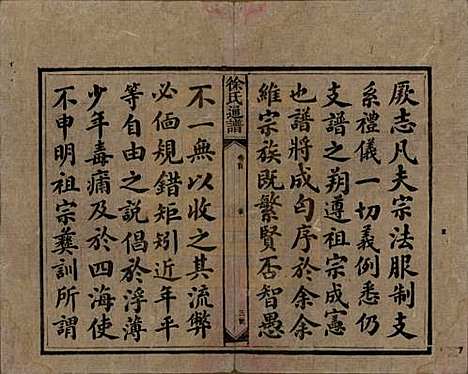 厥志凡夫宗法服制支
系禮儀一切義例悉仍
支譜之朔遵祖宗成憲
也譜將成匄序於余余
維宗族既繁賢否智愚
徐氏通譜
不一無以收之其流弊
必偭規錯矩矧近年平
等自由之說倡於浮薄
少年毒痛及於四海使
不申明祖宗彝訓所謂